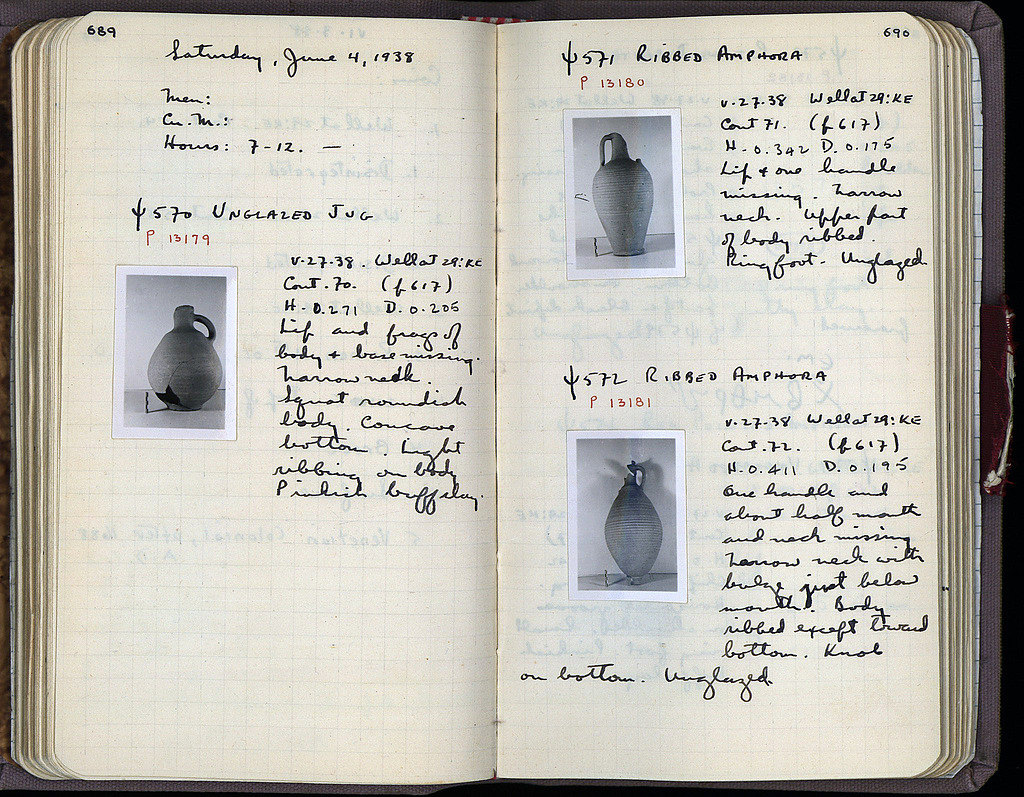 689
Saturday, June 4, 1938
Men:
Cu. M.:
Hours: 7-12. —
ψ570 UNGLAZED JUG
P 13179
V.27.38. Well at 29:KE
Cont. 70. (f 617)
H. 0.271 D. 0.205
Lip and frags of
body + base missing.
Narrow neck.
Squat roundish
body. Concave
bottom. Light
ribbing on body
Pinkish buff clay.
690
ψ571 RIBBED AMPHORA
P 13180
V.27.38 Well at 29:KE
Cont 71. (f 617)
H. 0.342 D. 0.175
Lip + one handle
missing. Narrow
neck. Upper part
of body ribbed.
Ring foot. Unglazed.
ψ572 RIBBED AMPHORA
P 13181
V.27.38 Well at 29:KE
Cont. 72. (f 617)
H. 0.411 D. 0.195
One handle and
about half mouth
and neck missing
Narrow neck with
bulge just below
mouth. Body
ribbed except toward
bottom. Knob
on bottom. Unglazed.